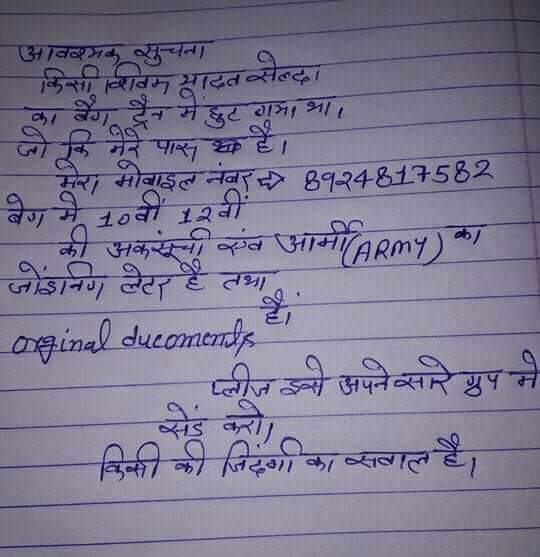 आवश्यक सुचना
किसी शिवम यादव सेल्दा
का बैग ट्रेन में छुट गया था।
जो कि मेरे पास है।
मेरा मोबाइल नंबर ⇒ 8924817582
बेग मे 10वीं 12वीं
की अकंसूची एंव आर्मी (ARMY) का
जोंइनिग लेटर है तथा
है।
orginal ducoments
प्लीज इसे अपने सारे ग्रुप मे
सेंड करो।
किसी की जिंदगी का सवाल है।